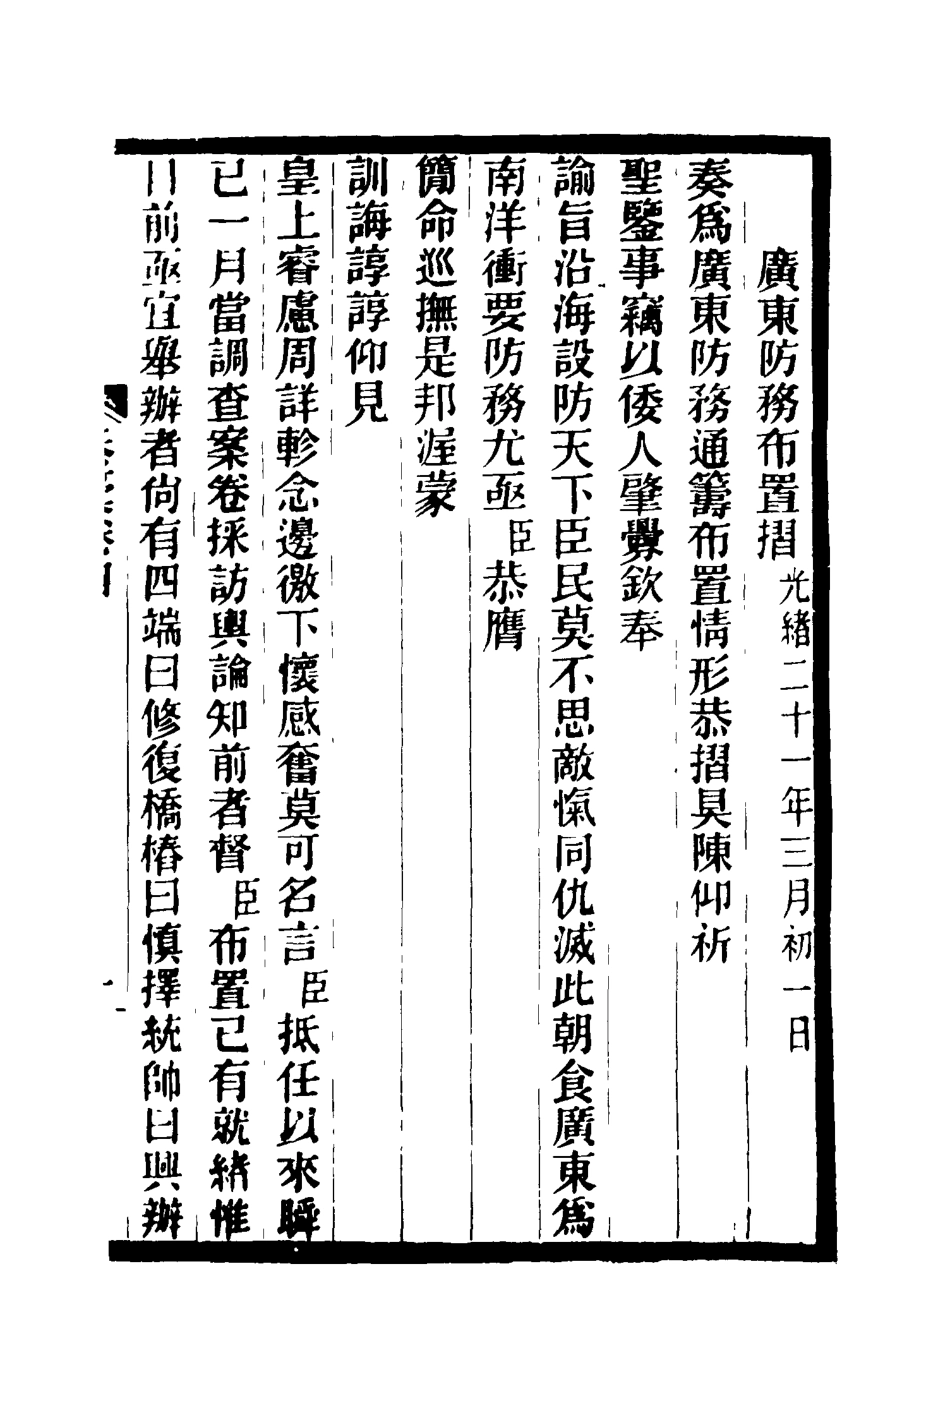 廣東防務布置摺光緒二十一年三月初一日
奏爲廣東防務通籌布置情形恭摺具陳仰祈
聖鑒事竊以倭人肇釁欽奉
諭旨沿海設防天下臣民莫不思敵愾同仇滅此朝食廣東爲
南洋衝要防務尤亟臣恭膺
簡命巡撫是邦渥蒙
訓誨諄諄仰見
皇上睿慮周詳軫念邊徼下懷感奮莫可名言臣抵任以來瞬
已一月當調查案卷採訪輿論知前者督臣布置已有就緒惟
目前亟宜舉辦者尙有四端曰修復橋樁曰愼擇統帥曰興辦